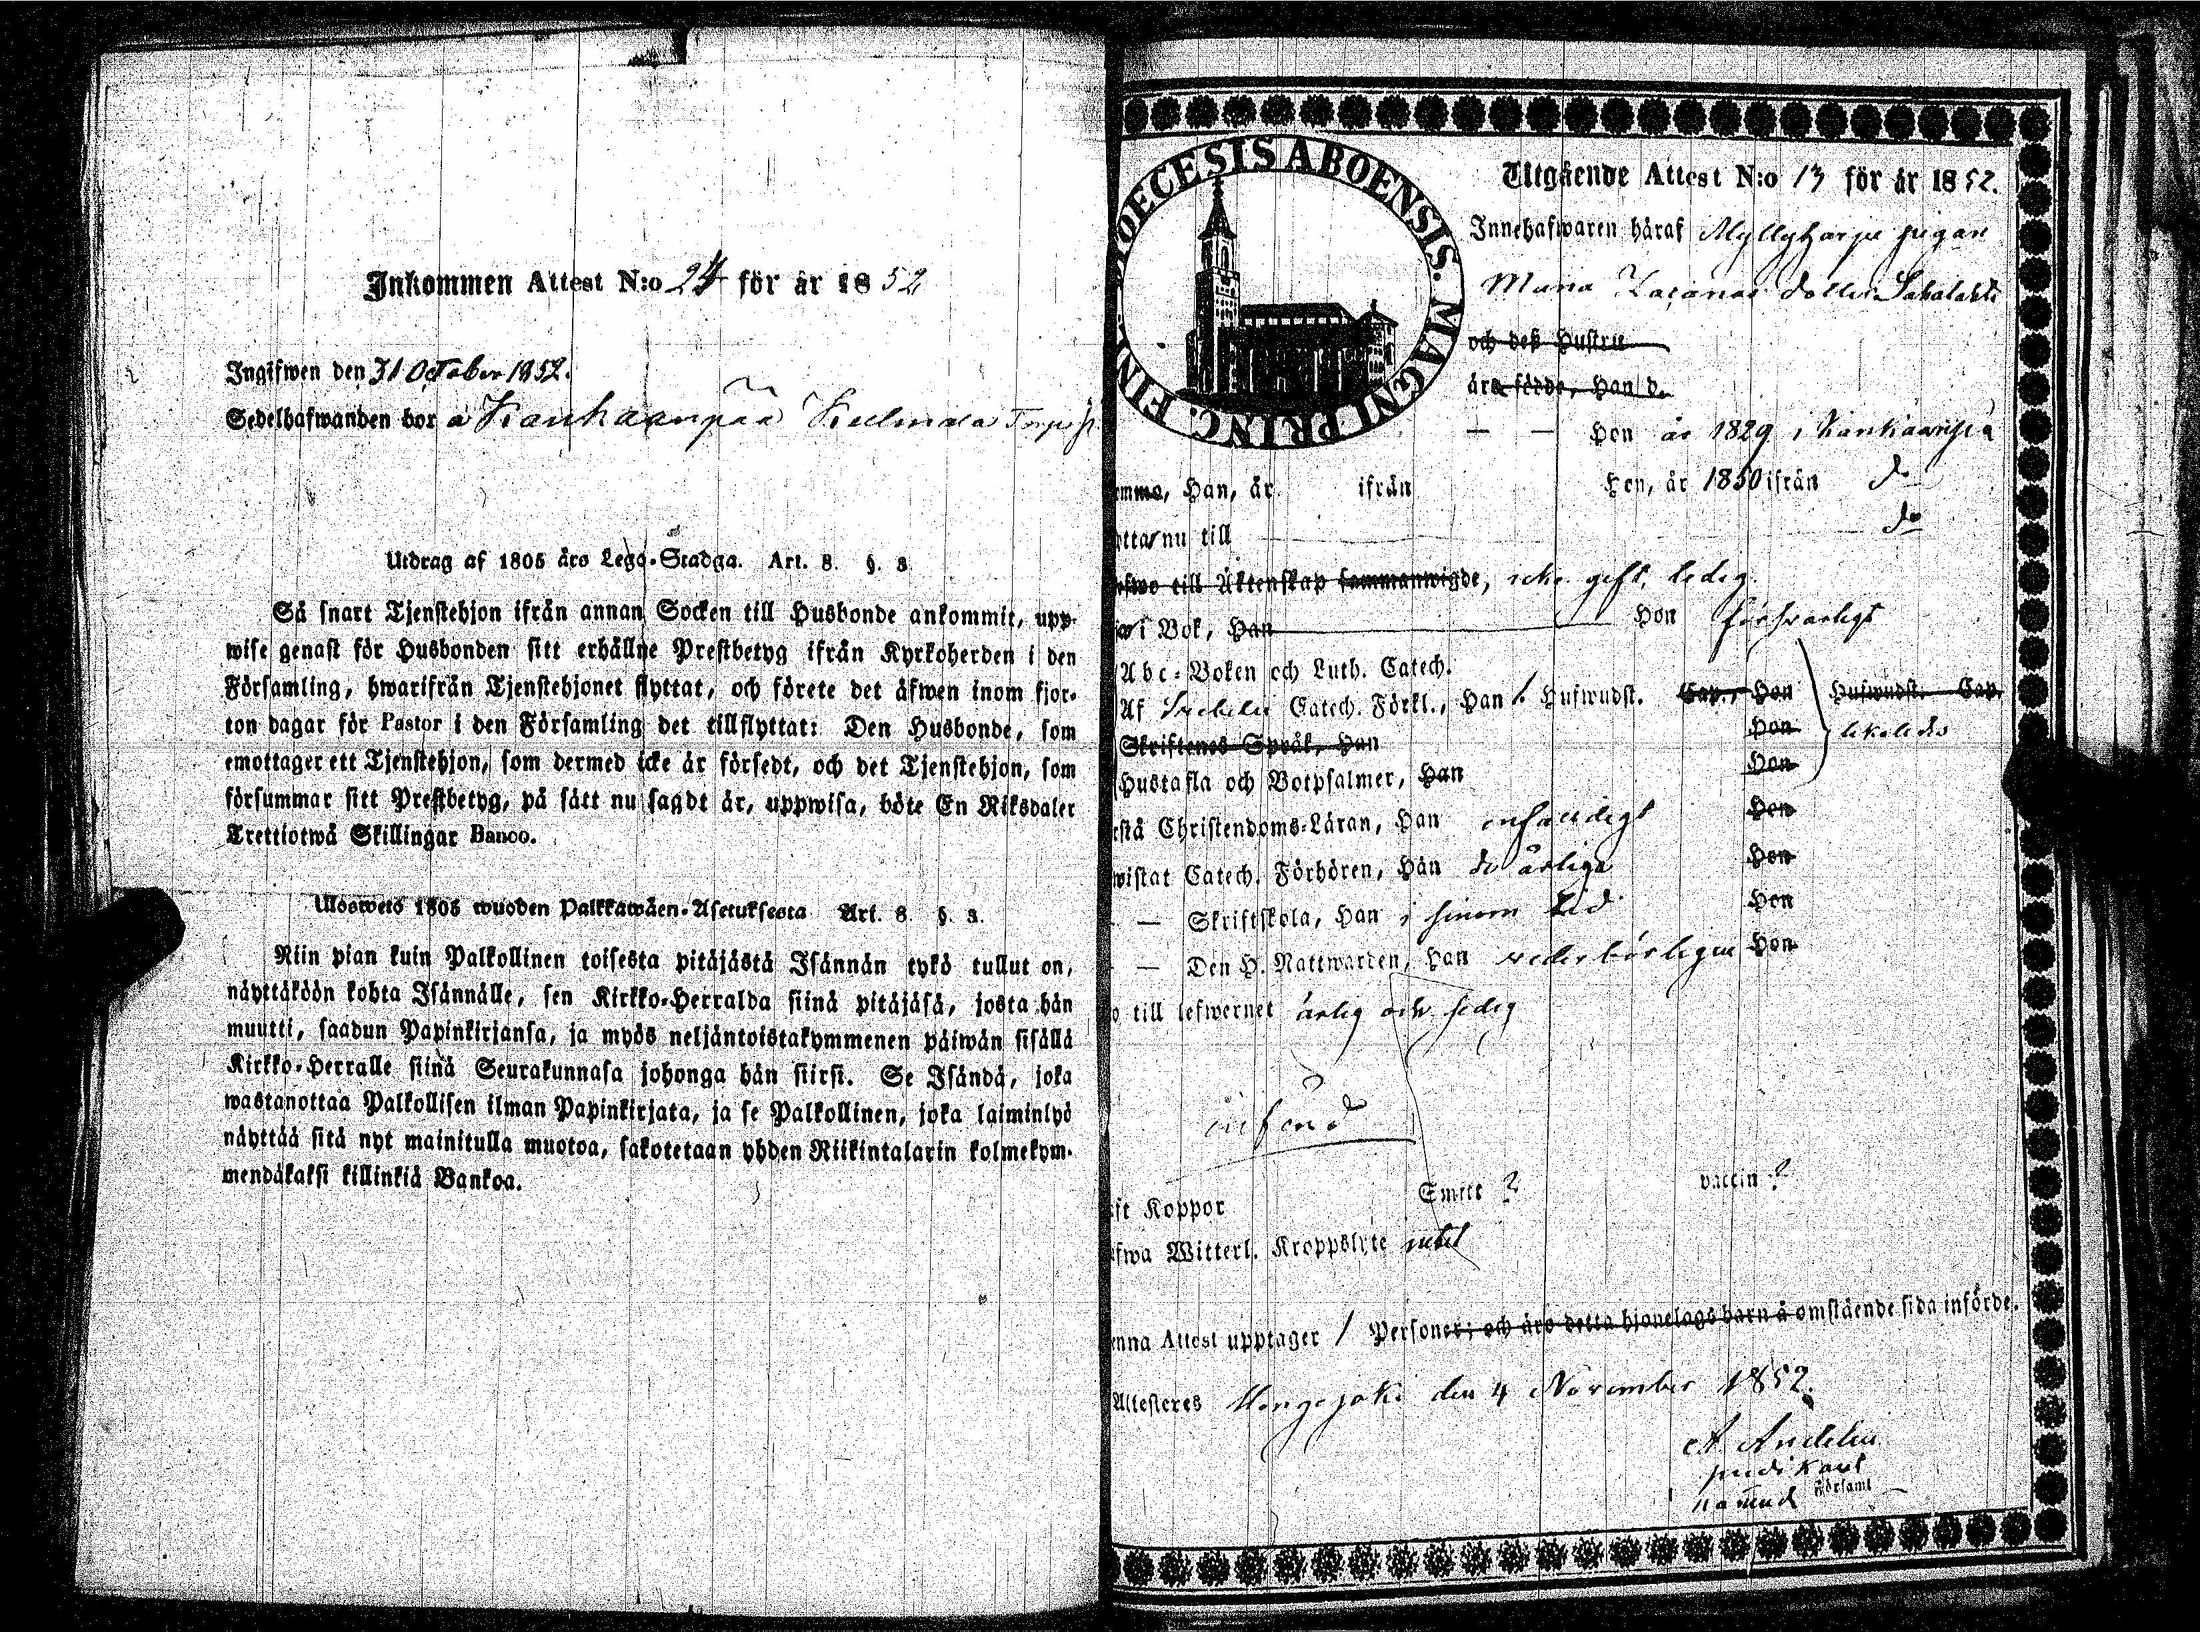 Inkommen Attest N:o 24 för år 1852
Ingifwen den 31 October 1852.
Sedelhafwanden bor å Kankaanpää
Utdrag af 1805 års Lego-Stadga. Art. 8. §. 3.
Så snart Tjenstehjon ifrån annan Socken till Husbonde ankommit, upp-
wise genast för Husbonden sitt erhållne Prestbetyg ifrån Kyrkoherden i den
Församling, hwarifrån Tjenstehjonet flyttat, och förete det äfwen inom fjor-
ton dagar för Pastor i den Församling det tillflyttat: Den Husbonde, som
emottager ett Tjenstehjon, som dermed icke är försedt, och det Tjenstehjon, som
försummar sitt Prestbetyg, på sätt nu sagdt är, uppwisa, böte En Riksdaler
Trettiotwå Skillingar Banco.
Ulosweto 1805 wuoden Palkkawäen-Asetuksesta Art. 8. §. 3.
Niin pian kuin Palkollinen toisesta pitäjästä Isännän tykö tullut on,
näyttäköön kohta Isännälle, sen Kirkko-Herralda siinä pitäjäsä, josta hän
muutti, saadun Papinkirjansa, ja myös neljäntoistakymmenen päiwän sisällä
Kirkko-Herralle siinä Seurakunnasa johonga hän siirsi. Se Isändä, joka
wastanottaa Palkollisen ilman Papinkirjata, ja se Palkollinen, joka laiminlyö
näyttää sitä nyt mainitulla muotoa, sakotetaan yhden Riikintalarin kolmekym-
mendäkaksi killinkiä Bankoa.
DIOECESIS ABOENSIS. MAGNI PRINC. FIN
Utgående Attest N:o 13 för år 1852.
Innehafwaren häraf Myllyharju pigan
Maria dotter Sahalahti
och deß Hustru
äro födde, Han d.
— — Hon år 1829 i Kankaanpää
Han, år ifrån Hon, år 1850 ifrån do
nu till do
till Äktenskap sammanwigde, icke gift, ledig.
i Bok, Han Hon försvarligt
Abc-Boken och Luth. Catech.
Af Catech. Förkl., Han 6 Hufwudst. Cap., Hon Hufwudst. Cap.
Skriftenes Språk, Han Hon likaledes
Hustafla och Botpsalmer, Han Hon
Christendoms-Läran, Han enfaldigt Hon
Catech. Förhören, Han do årliga Hon
— Skriftskola, Han i sinom tid Hon
— Den H. Nattwarden, Han wederbörligen Hon
till lefwernet ärlig och sedig
införd
Koppor Smitt ? vaccin ?
Witterl. Kroppslyte intet
Attest upptager 1 Personer; och äro detta hjonelags barn å omstående sida införde.
Attesteres Hongojoki den 4 November 1852.
A. Andelin
predikant
Församl